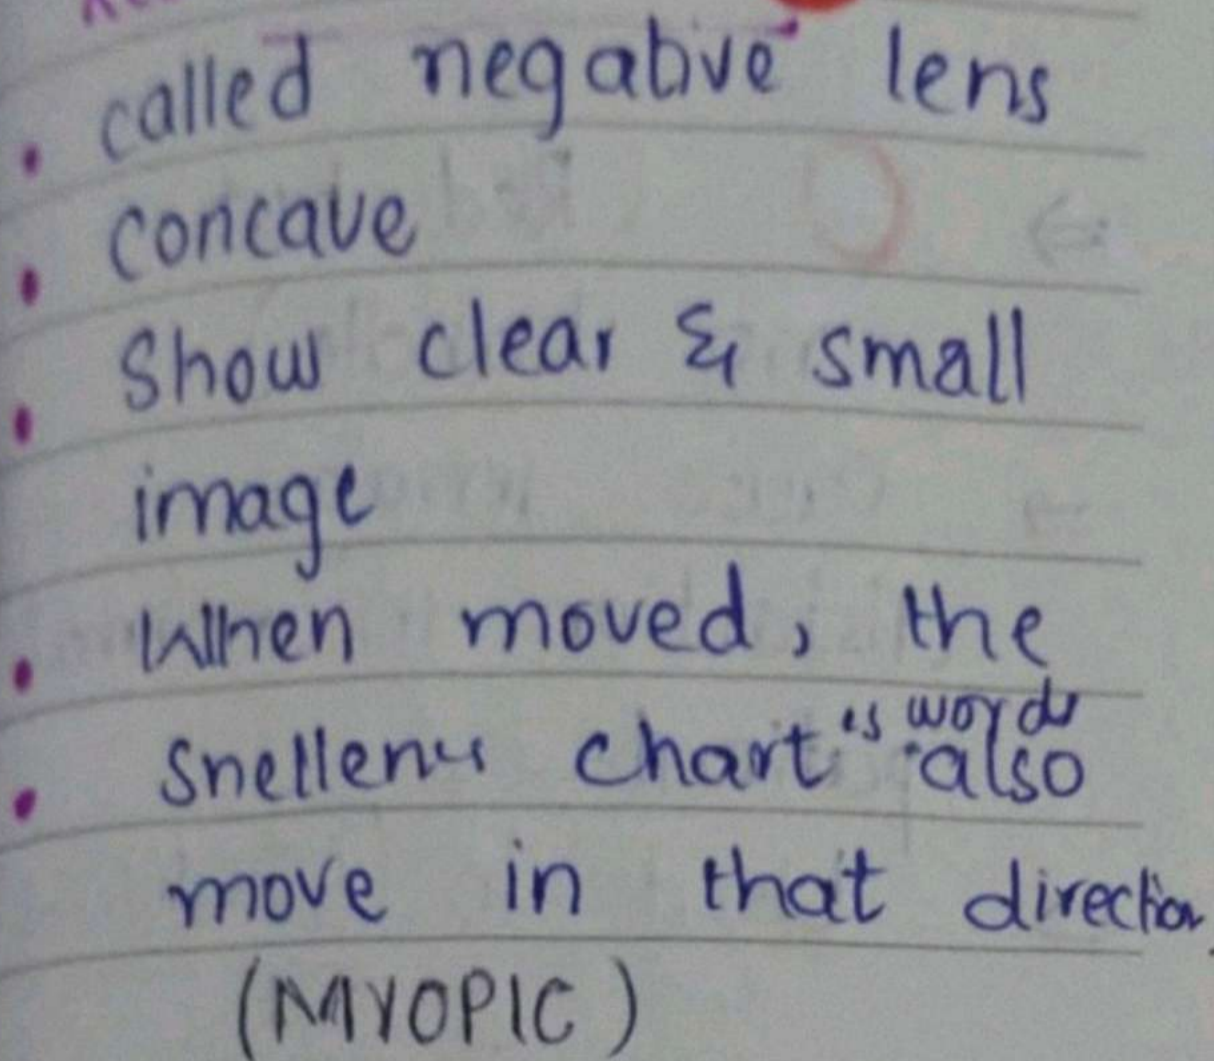 • called negative lens
• concave
• Show clear & small
image
• When moved, the
• Snellen's chart "s words also
move in that direction
(MYOPIC)